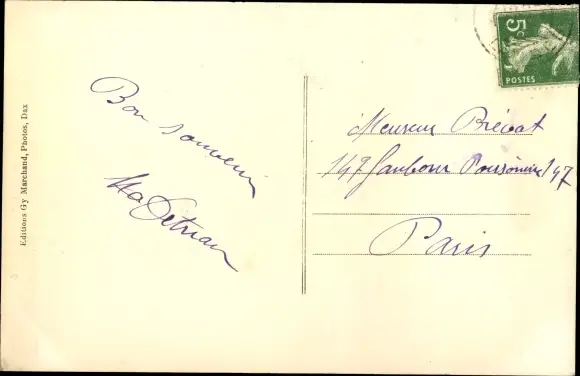 Editions Gy Marchand, Photos, Dax
Bon souvenir
5c
POSTES
Monsieur Brévat
147 Faubour Poissonière 147
Paris